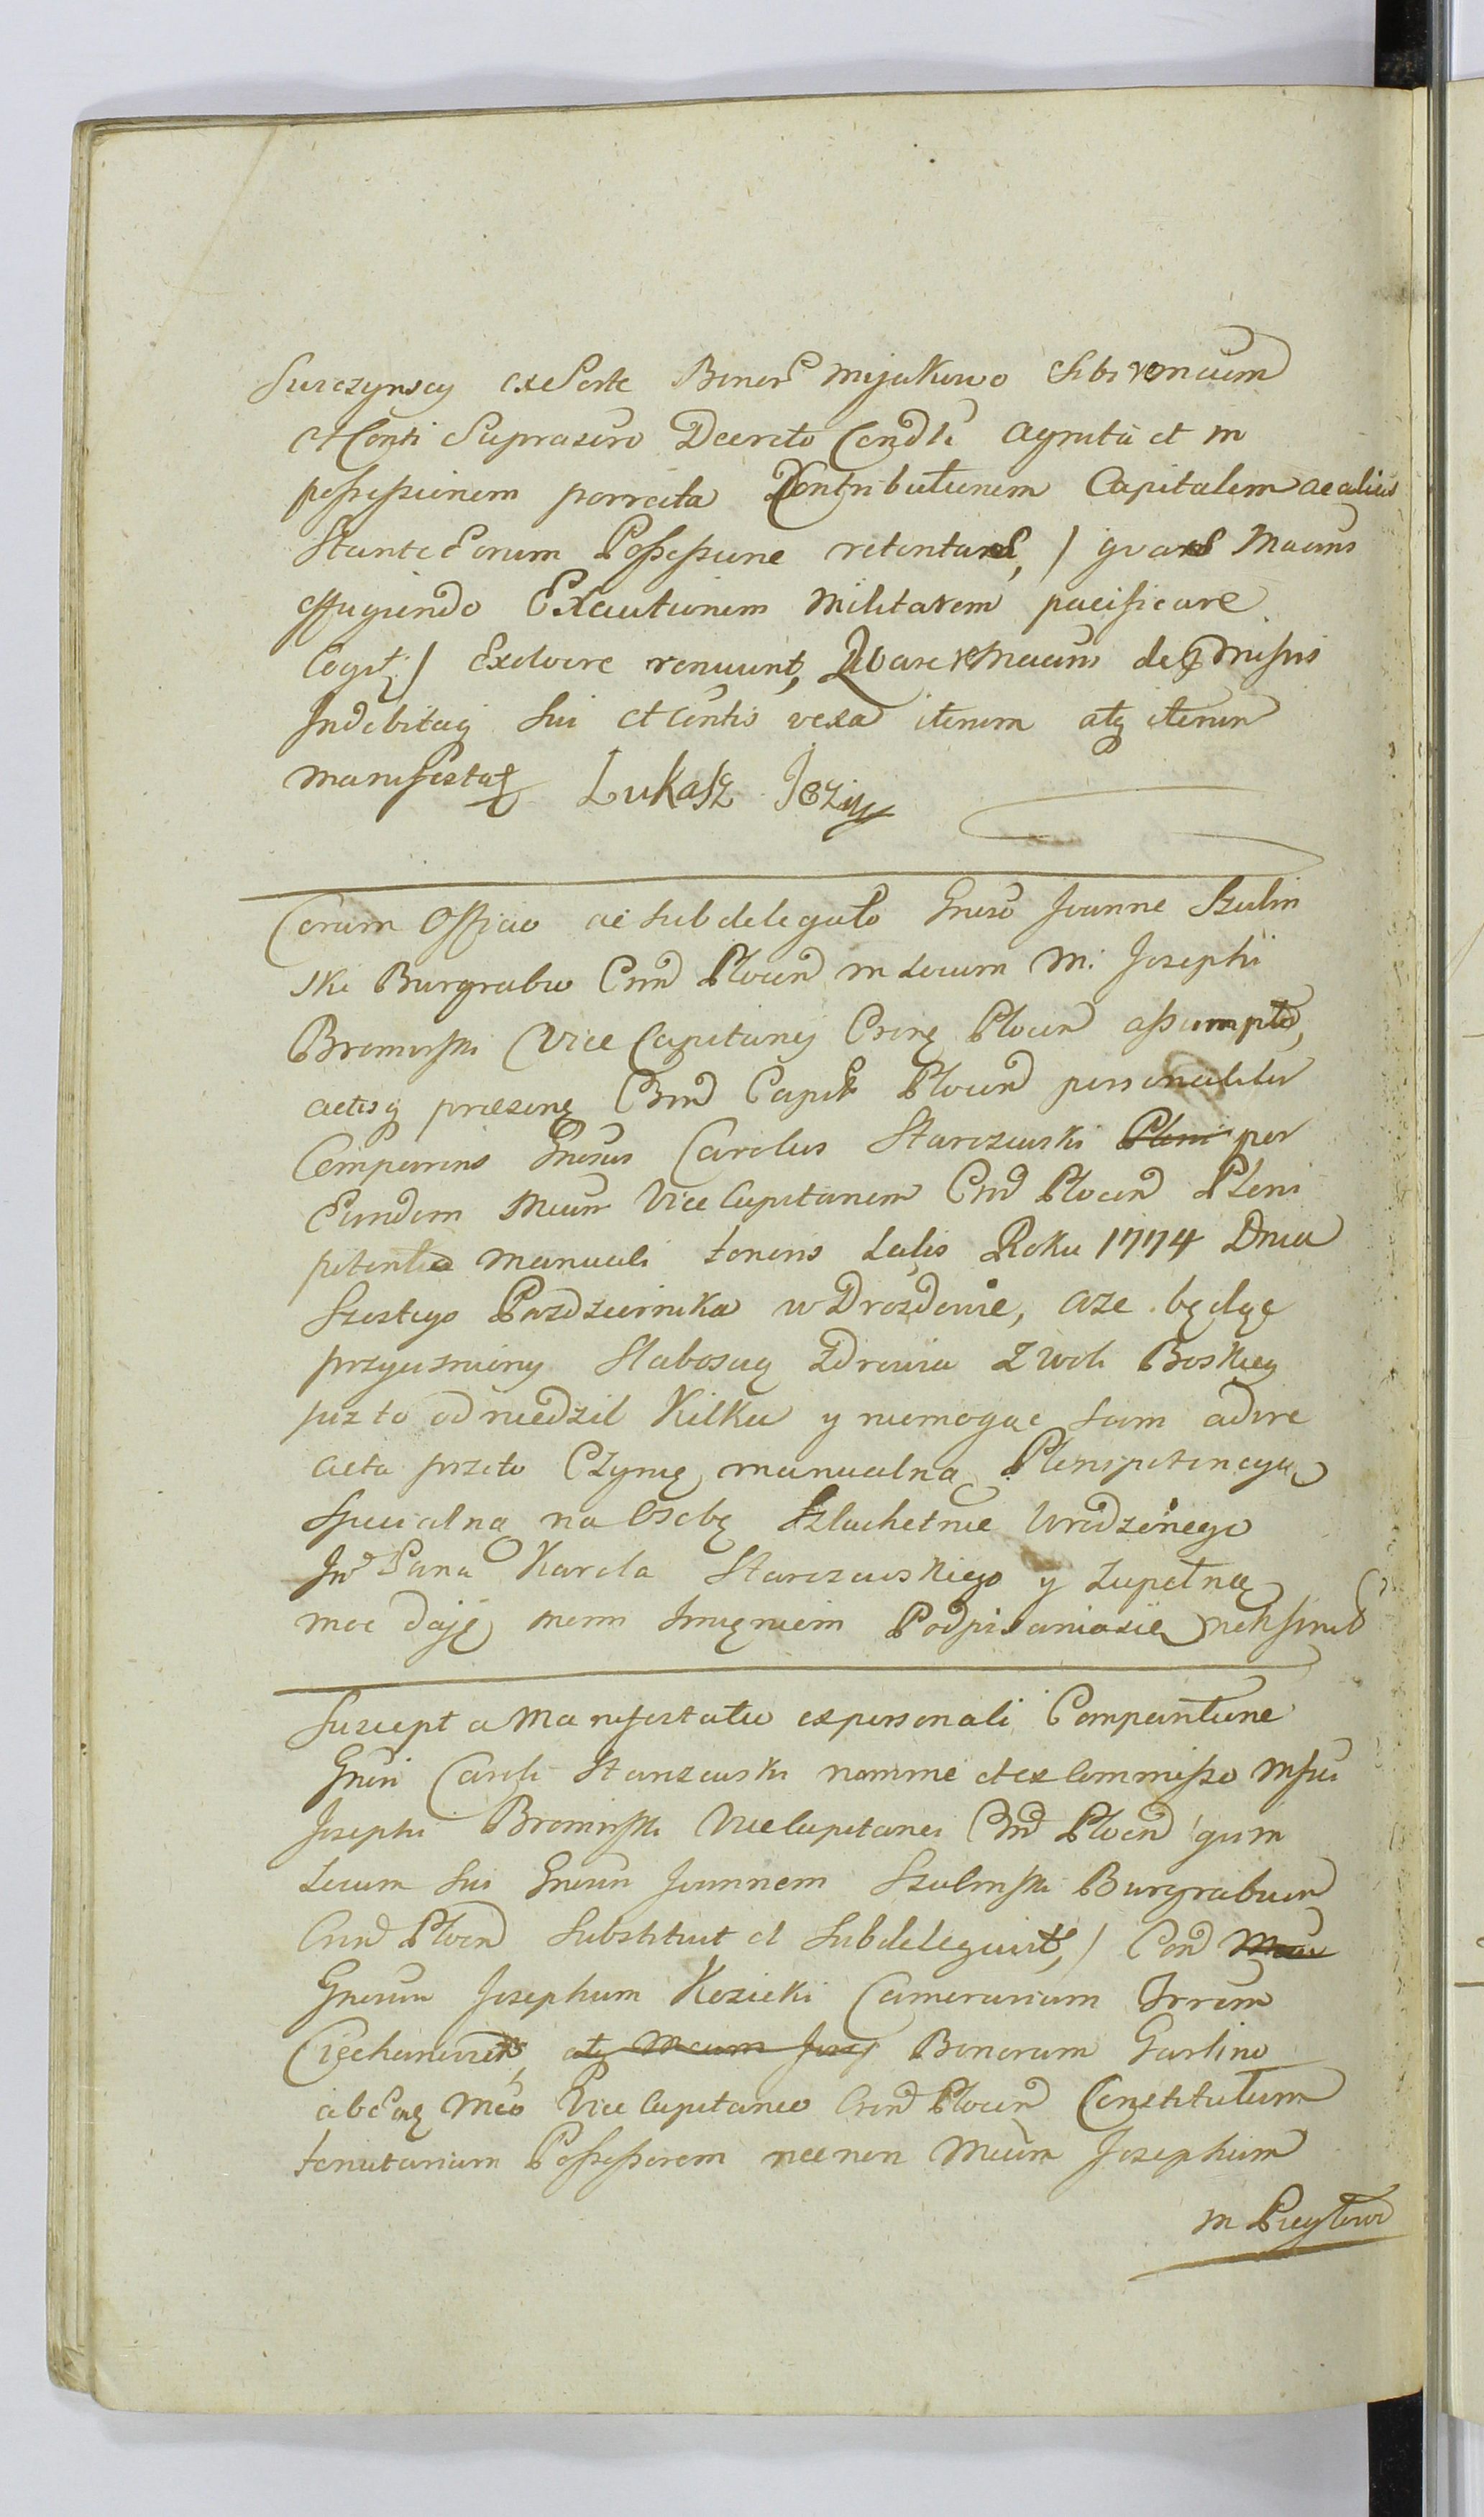 Surczynscy exsorte Bonor Mijakowo sibi
et Conti Suprascro Decreto Condli agnita et in
possessionem porrecta Contributionem Capitalem ac alias
Stante Eorum Possessione retentas, / quas Mcus
effugiendo Executionem Militarem pacificare
Cogit / Exolvere renuunt, Quare Mcus de
Indebitaq Sui et Contis vexa iterum atq iterum
manifestat Łukasz Jeży

Coram Officio ac subdelegato Gnroso Joanne Szulin
ski Burgrabio Crnd Plocen in Locum M. Josephi
Bromirski Vice Capitanij Plocen assumpto,
actisq præsent Capit Plocen personaliter
Comparens Gnrosus Carolus Starczewski Pleni per
Eundem Mcum Vice Capitaneum Plocen Pleni
potentia manuali tenoris talis Roku 1774 Dnia
Szostego Pazdziernika w Drozdowie, aze będąc
przycisniony Słaboscią Zdrowia Z woli Boskiey
juz to od niedziel Kilku y niemogąc Sam adire
acta przeto Czynię manualną Plenipotencyą
Specialną na Osobę Szlachetnie Urodzonego
Pana Karola Starczewskiego y zupełną
moc daję moim Imieniem Podpisania się

Suscepta Manifestatio ex personali Comparitione
Gnrosi Caroli Starczewski nomine et ex Commisso
Josephi Bromirski Vicecapitanei Plocen qui in
Locum Sui Gnrosum Joannem Szulinski Burgrabium
Plocen Substituit et Subdelegavit, / Con Mcum
Gnrosum Josephum Kozicki Camerarium Trrum
Ciechanovien, atq Mcum Jos Bonorum Garlino
ab Eoq Mco Vice Capitaneo Plocen Constitutum
tenutarium Possessorem necnon Mcum Josephum